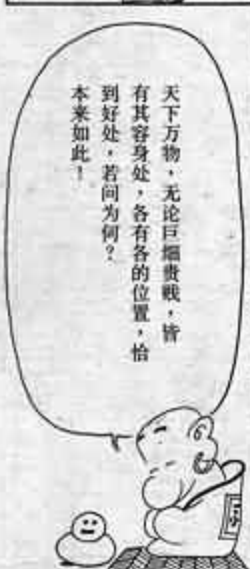 天下万物，无论巨细贵贱，皆
有其容身处，各有各的位置，恰
到好处，若问为何？
本来如此！